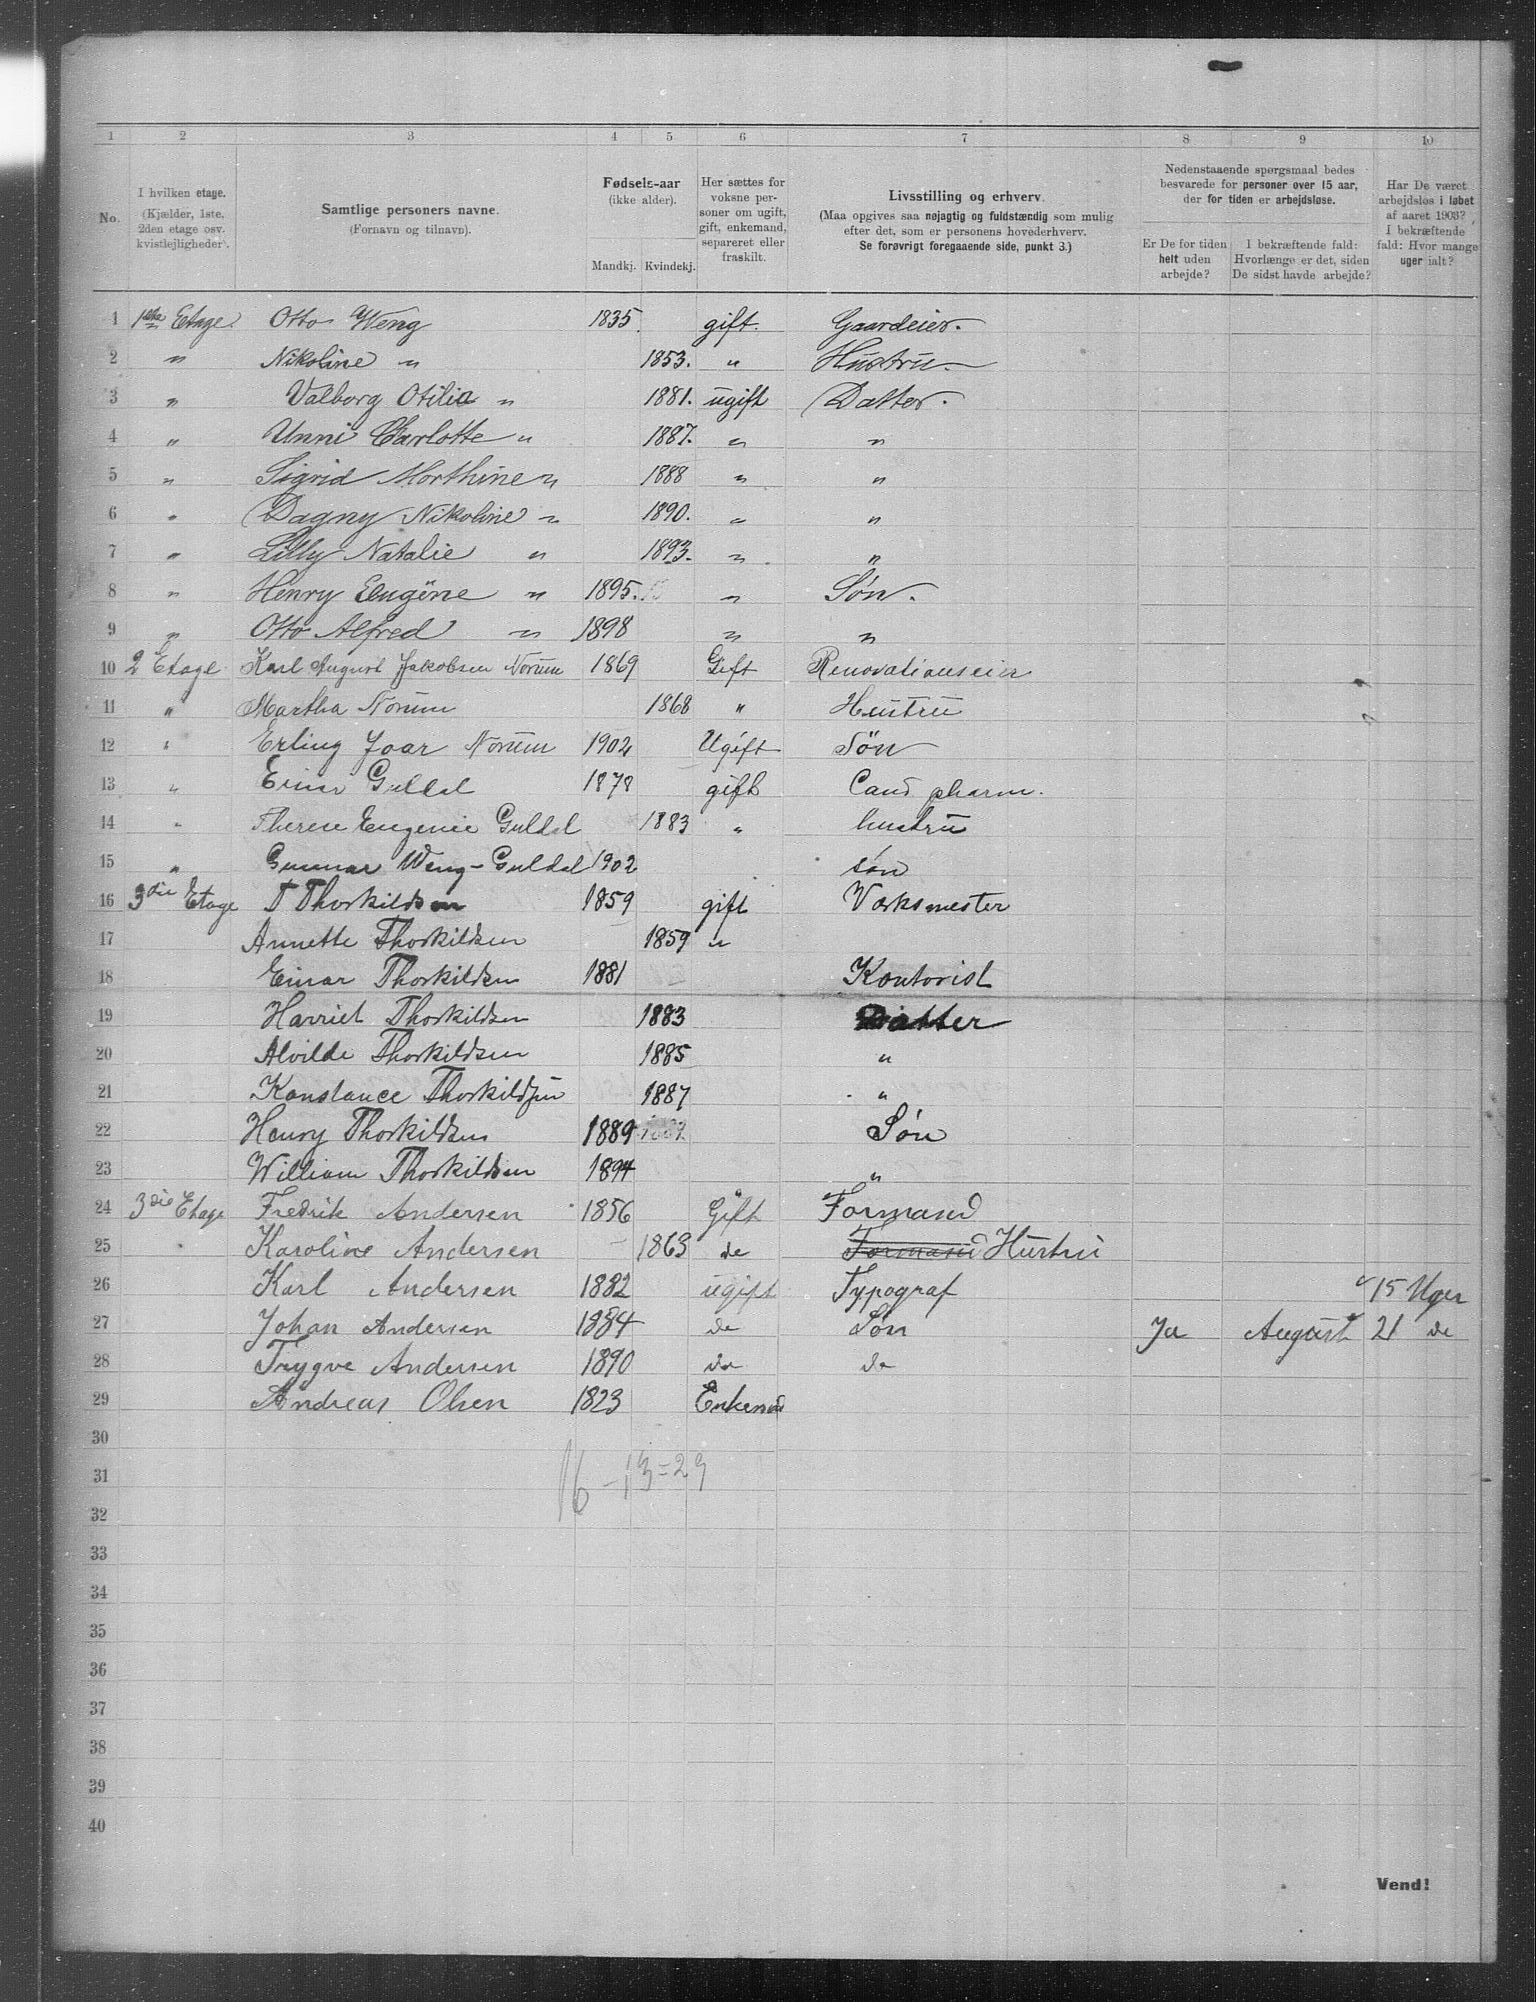 1 2 3 4 5 6 7 8 9 10
No. | I hvilken etage. (Kjælder, 1ste, 2den etage osv. kvistlejligheder). | Samtlige personers navne. (Fornavn og tilnavn). | Fødsels-aar (ikke alder). Mandkj. Kvindekj. | Her sættes for voksne personer om ugift, gift, enkemand, separeret eller fraskilt. | Livsstilling og erhverv. (Maa opgives saa nøjagtig og fuldstændig som mulig efter det, som er personens hovederhverv. Se forøvrigt foregaaende side, punkt 3.) | Nedenstaaende spørgsmaal bedes besvarede for personer over 15 aar, der for tiden er arbejdsløse. Er De for tiden helt uden arbejde? | I bekræftende fald: Hvorlænge er det, siden De sidst havde arbejde? | Har De været arbejdsløs i løbet af aaret 1903? I bekræftende fald: Hvor mange uger ialt?
1 1ste Etage. Otto Weng 1835. gift. Gaardeier.
2 " Nikoline " 1853. " Hustru
3 " Valborg Otilia " 1881. ugift Datter.
4 " Unni Charlotte " 1887. " "
5 " Sigrid Morthine " 1888 " "
6 " Dagny Nikoline " 1890. " "
7 " Lilly Natalie " 1893. " "
8 " Henry Eugéne " 1895. " Søn.
9 " Otto Alfred " 1898 " "
10 2 Etage Karl August Jakobsen Norum 1869 Gift Renovationseier
11 " Martha Norum 1868 " Hustru
12 " Erling Joar Norum 1902 Ugift Søn
13 " Einar Guldal 1878 gift Cand pharm.
14 " Therese Eugenie Guldal 1883 " hustru
15 " Gunnar Weng-Guldal 1902 søn
16 3die Etage T Thorkildsen 1859 gift Værksmester
17 Annette Thorkildsen 1859 "
18 Einar Thorkildsen 1881 Kontorist
19 Harriet Thorkildsen 1883 Datter
20 Alvilde Thorkildsen 1885 "
21 Konstance Thorkildsen 1887 "
22 Henry Thorkildsen 1889 Søn
23 William Thorkildsen 1894 "
24 3die Etage Fredrik Andersen 1856 Gift Formand
25 Karoline Andersen 1863 do Formand Hustru
26 Karl Andersen 1882 ugift Typograf 15 Uger
27 Johan Andersen 1884 do Søn Ja August 21 do
28 Trygve Andersen 1890 do do
29 Andreas Olsen 1823 Enkemand
30
31 16-13=29
32
33
34
35
36
37
38
39
40
Vend!